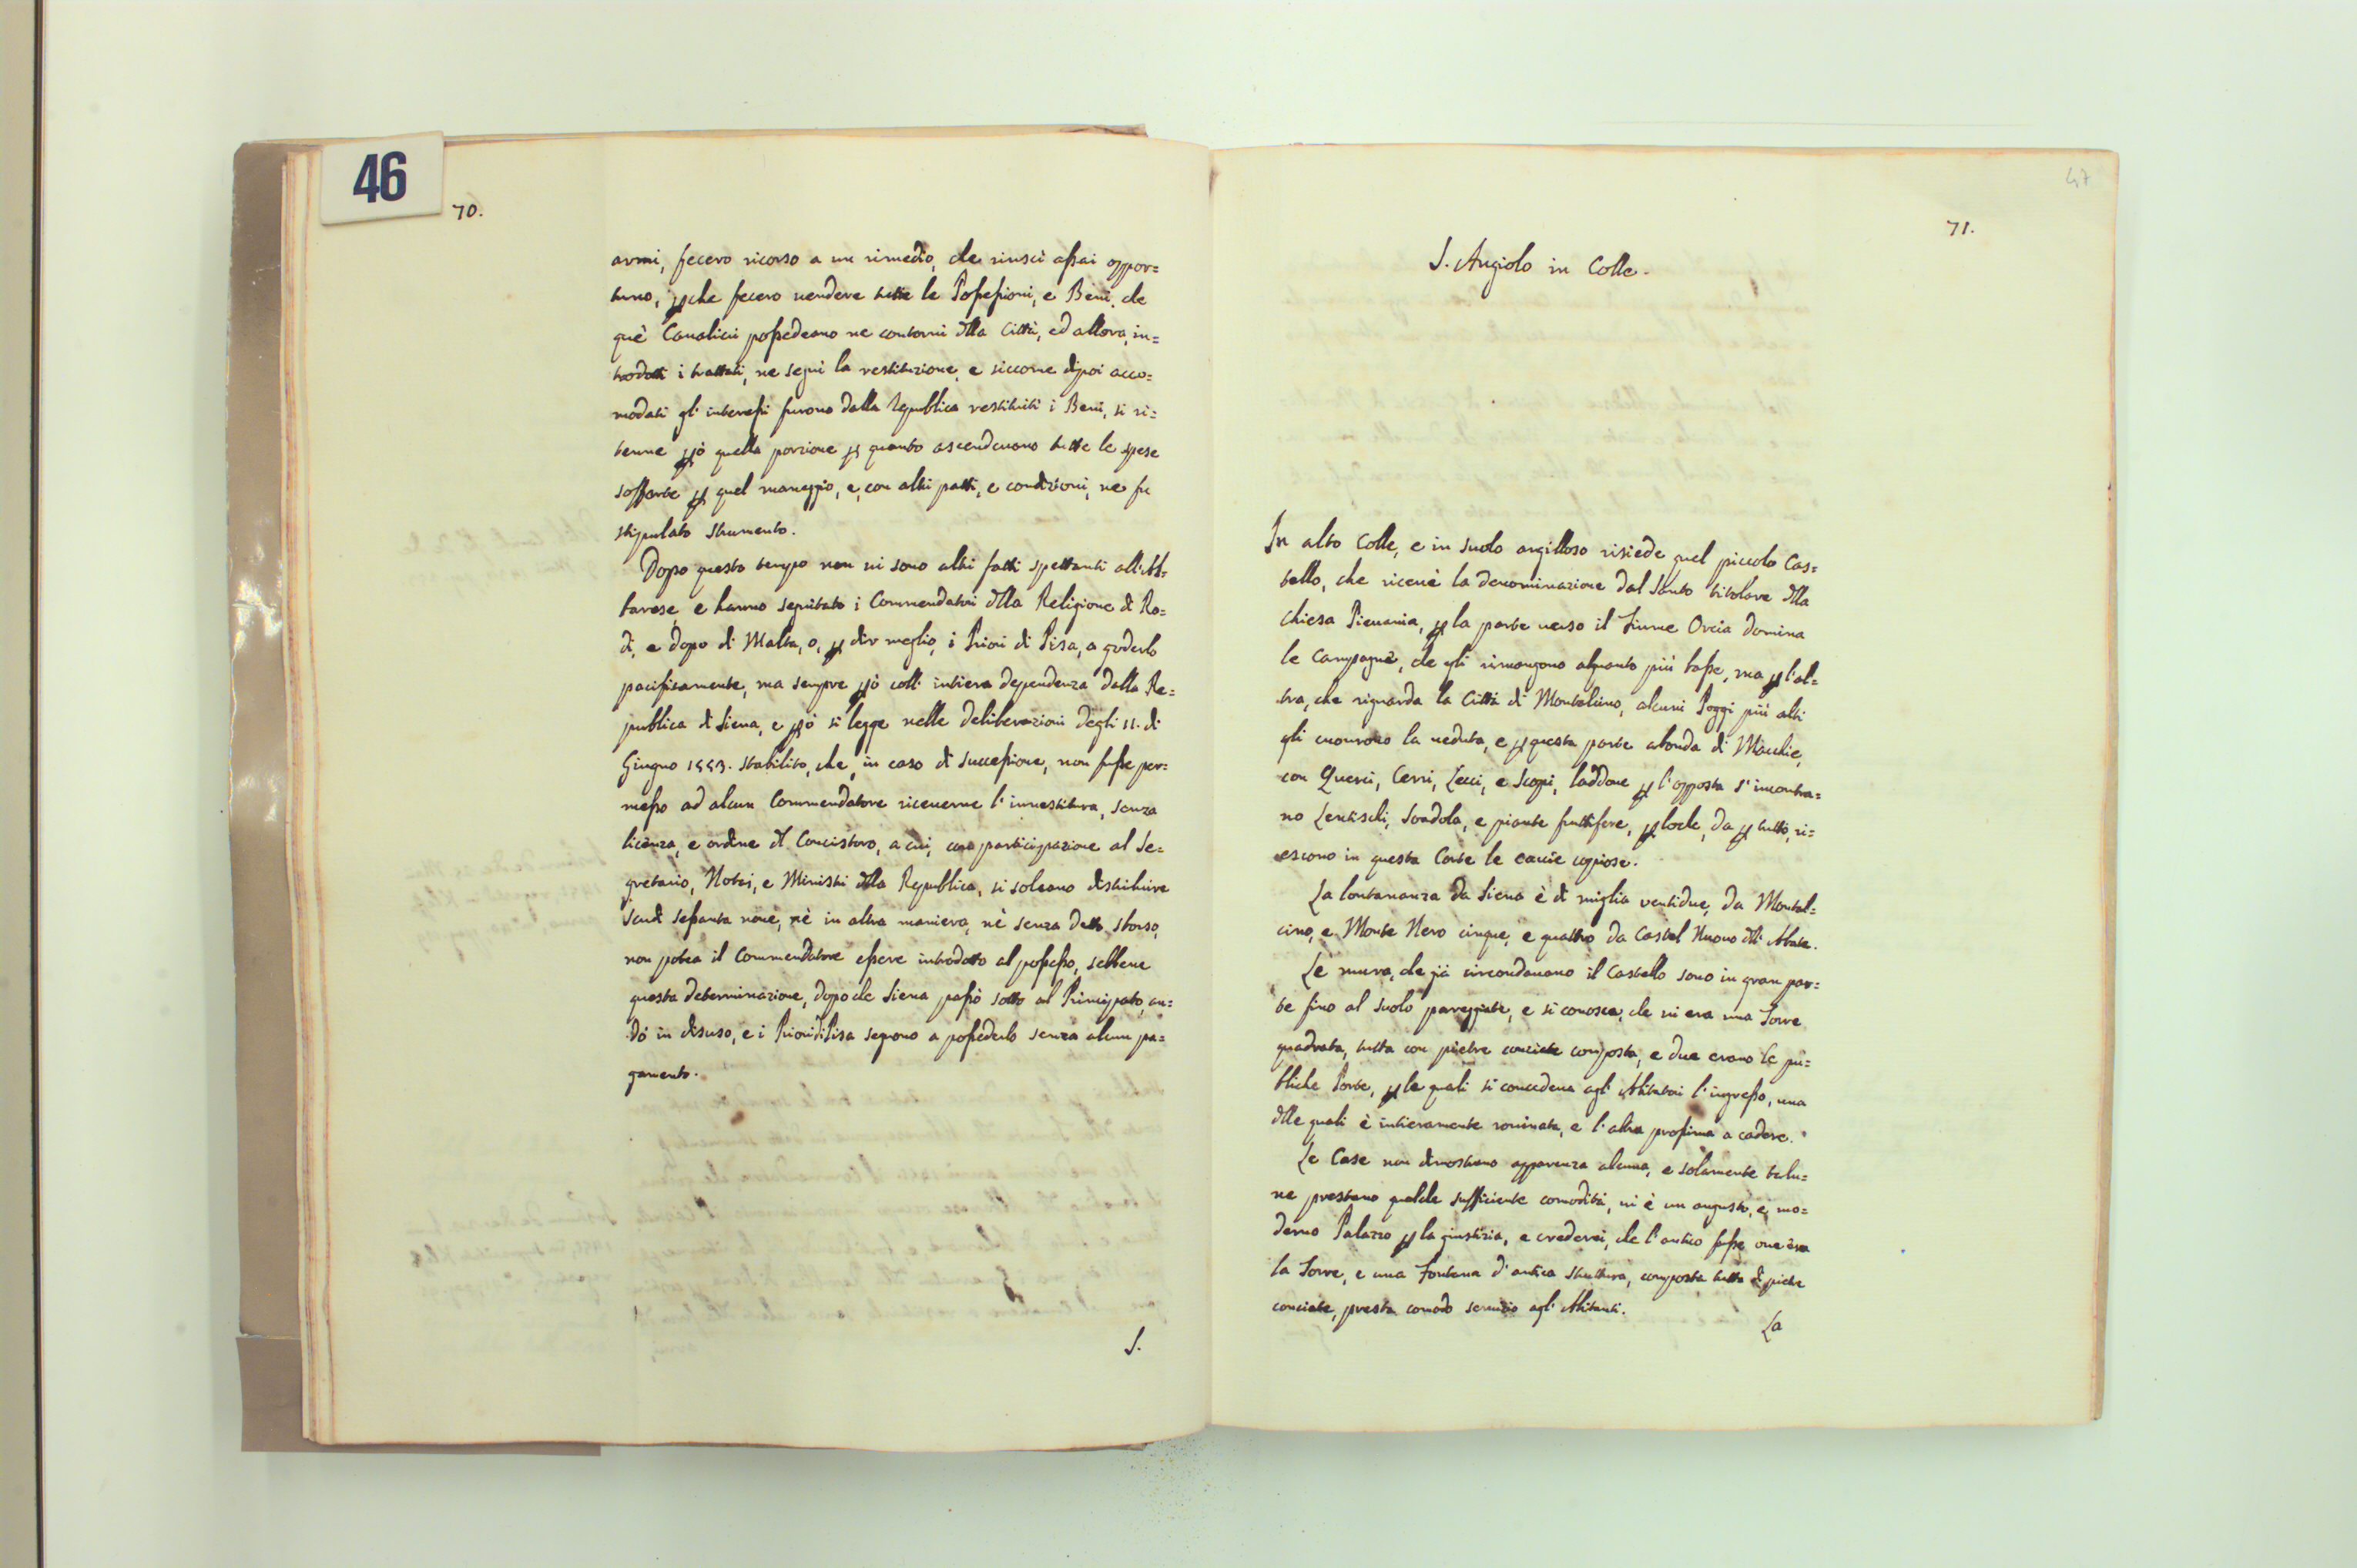 46
70.
armi, fecero ricorso a un rimedio, che riuscì assai oppor=
tuno, pche fecero vendere tutte le Possessioni, e Beni, che
què Cavalieri possedeano ne contorni dlla Città, ed allora, in=
trodotti i trattati, ne seguì la restituzione, e siccome dipoi acco=
modati gl' interessi furono dalla Republica restituiti i Beni, si ri=
tenne pò quella porzione p quanto ascendevano tutte le spese
sofferte p quel maneggio, e, con altri patti, e condizioni, ne fu
stipulato strumento.
Dopo questo tempo non vi sono altri fatti spettanti all'Al=
tarese, e hanno seguitato i Commendatori dlla Religione di Ro=
di, e dopo di Malta, o, p dir meglio, i Priori di Pisa, a goderlo
pacificamente, ma sempre pò coll' intiera dependenza dalla Re=
publica di Siena, e pò si legge nelle deliberazioni degli 11. di
Giugno 1553. stabilito, che, in caso di successione, non fusse per=
messo ad alcun Commendatore riceverne l' investitura, senza
licenza, e ordine dl Concistoro, a cui, con participazione al Se=
gretario, Notai, e Ministri dlla Republica, si soleano distribuire
scudi sessanta nove, nè in altra maniera, nè senza detto sborso,
non potea il Commendatore essere introdotto al possesso, sebbene
questa determinazione, dopo che Siena passò sotto al Principato, an=
dò in disuso, e i Priori di Pisa seguono a possederlo senza alcun pa=
gamento.
S.
47
71.
S. Angiolo in Colle.
In alto Colle, e in suolo argilloso risiede quel piccolo Cas=
tello, che ricevè la denominazione dal Santo titolare dlla
Chiesa Pievania, p la parte verso il Fiume Orcia domina
le Campagne, che gli rimangono alquanto più basse, ma p l'al=
tra, che riguarda la Città di Montalcino, alcuni Poggi più alti
gli cuoprono la veduta, e p questa parte abonda di Macchie,
con Querci, Cerri, Lecci, e Scopi, laddove p l'opposta s' incontra=
no Lentischi, Sondola, e piante fruttifere, p loche, da p tutto, ri=
escono in questa Corte le caccie copiose.
La lontananza da Siena è di miglia ventidue, da Montal=
cino, e Monte Nero cinque, e quattro da Castel Nuovo dll' Abate.
Le mura, che già circondavano il Castello sono in gran par=
te fino al suolo pareggiate, e si conosce, che vi era una Torre
quadrata, tutta con pietre conciate composta, e due erano le pu=
bliche Porte, p le quali si concedeva agl' Abitatori l' ingresso, una
dlle quali è intieramente rovinata, e l' altra prossima a cadere.
Le Case non dimostrano apparenza alcuna, e solamente talu=
ne prestano qualche sufficiente comodità, vi è un angusto, e mo=
derno Palazzo p la giustizia, e crederei, che l' antico fusse ove era
la Torre, e una Fontana d' antica struttura, composta tutta di pietre
conciate, presta comodo servizio agl' Abitanti.
La